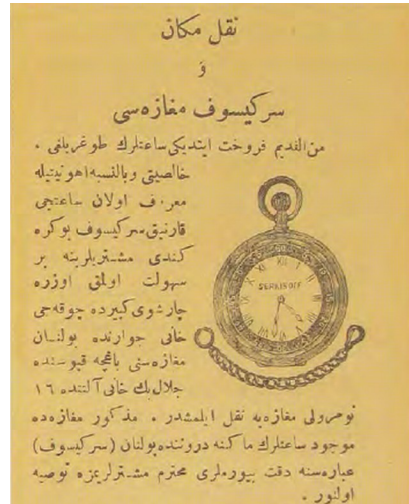 نقل مکان
و
سركيسوف مغازه سی
من القديم فروخت ايتديكی ساعتلرك طوغريلغی ،
خالصيتی و بالنسبه اهونيتيله
معروف اولان ساعتجی
قارنيق سركيسوف بوكره
كندی مشتريلرينه بر
سهولت اولمق اوزره
چارشوی كبيرده چوقه جی
خانی جوارنده بولنان
مغازه سنی باغچه قپوسنده
جلال بك خانی آلتنده ١٦
SERKISOFF
نومرولی مغازه يه نقل ايلمشدر . مذكور مغازه ده
موجود ساعتلرك ماكنه دروننده بولنان (سركيسوف)
عباره سنه دقت بيورملری محترم مشتريلريمزه توصيه
اولنور .